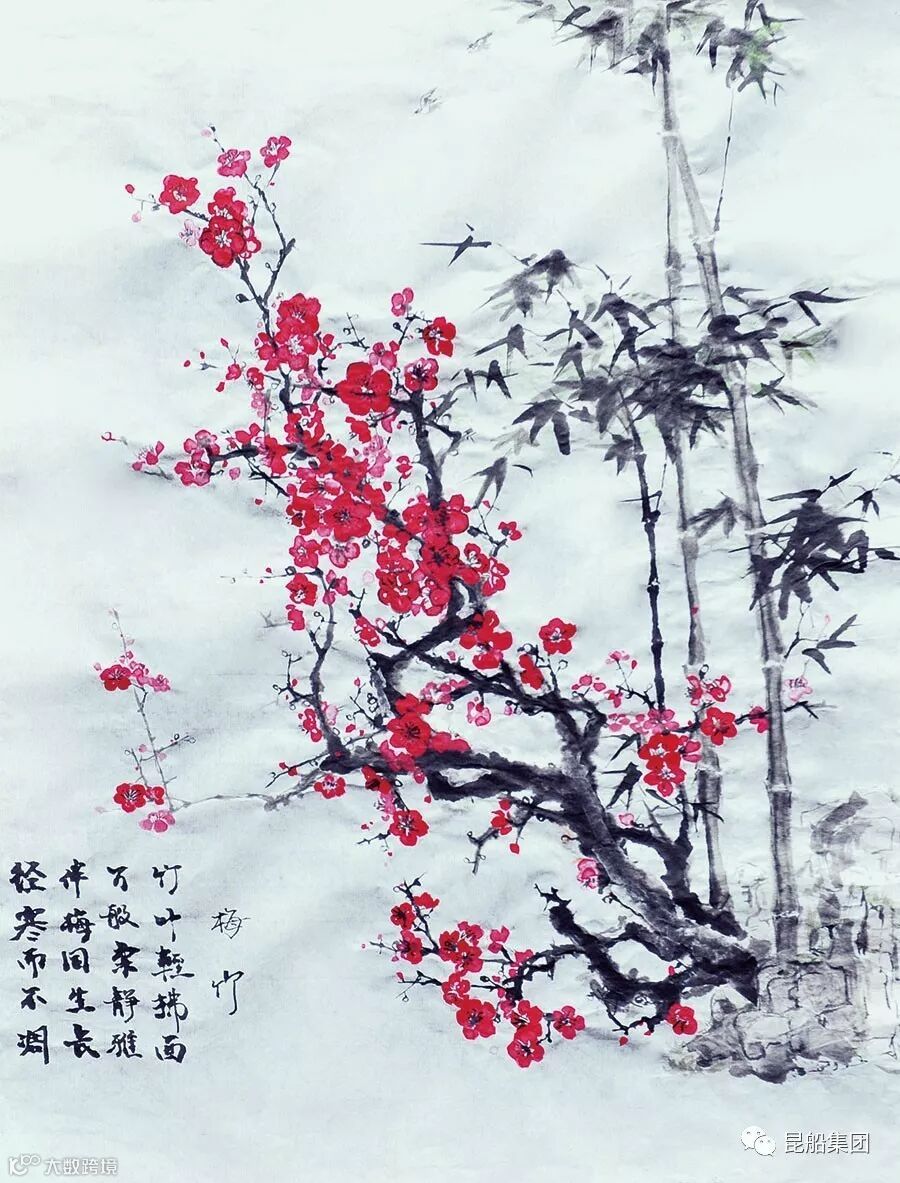 梅竹
竹叶輕拂面
万般柔静雅
伴梅同生長
经寒而不凋
昆船集团
大数跨境